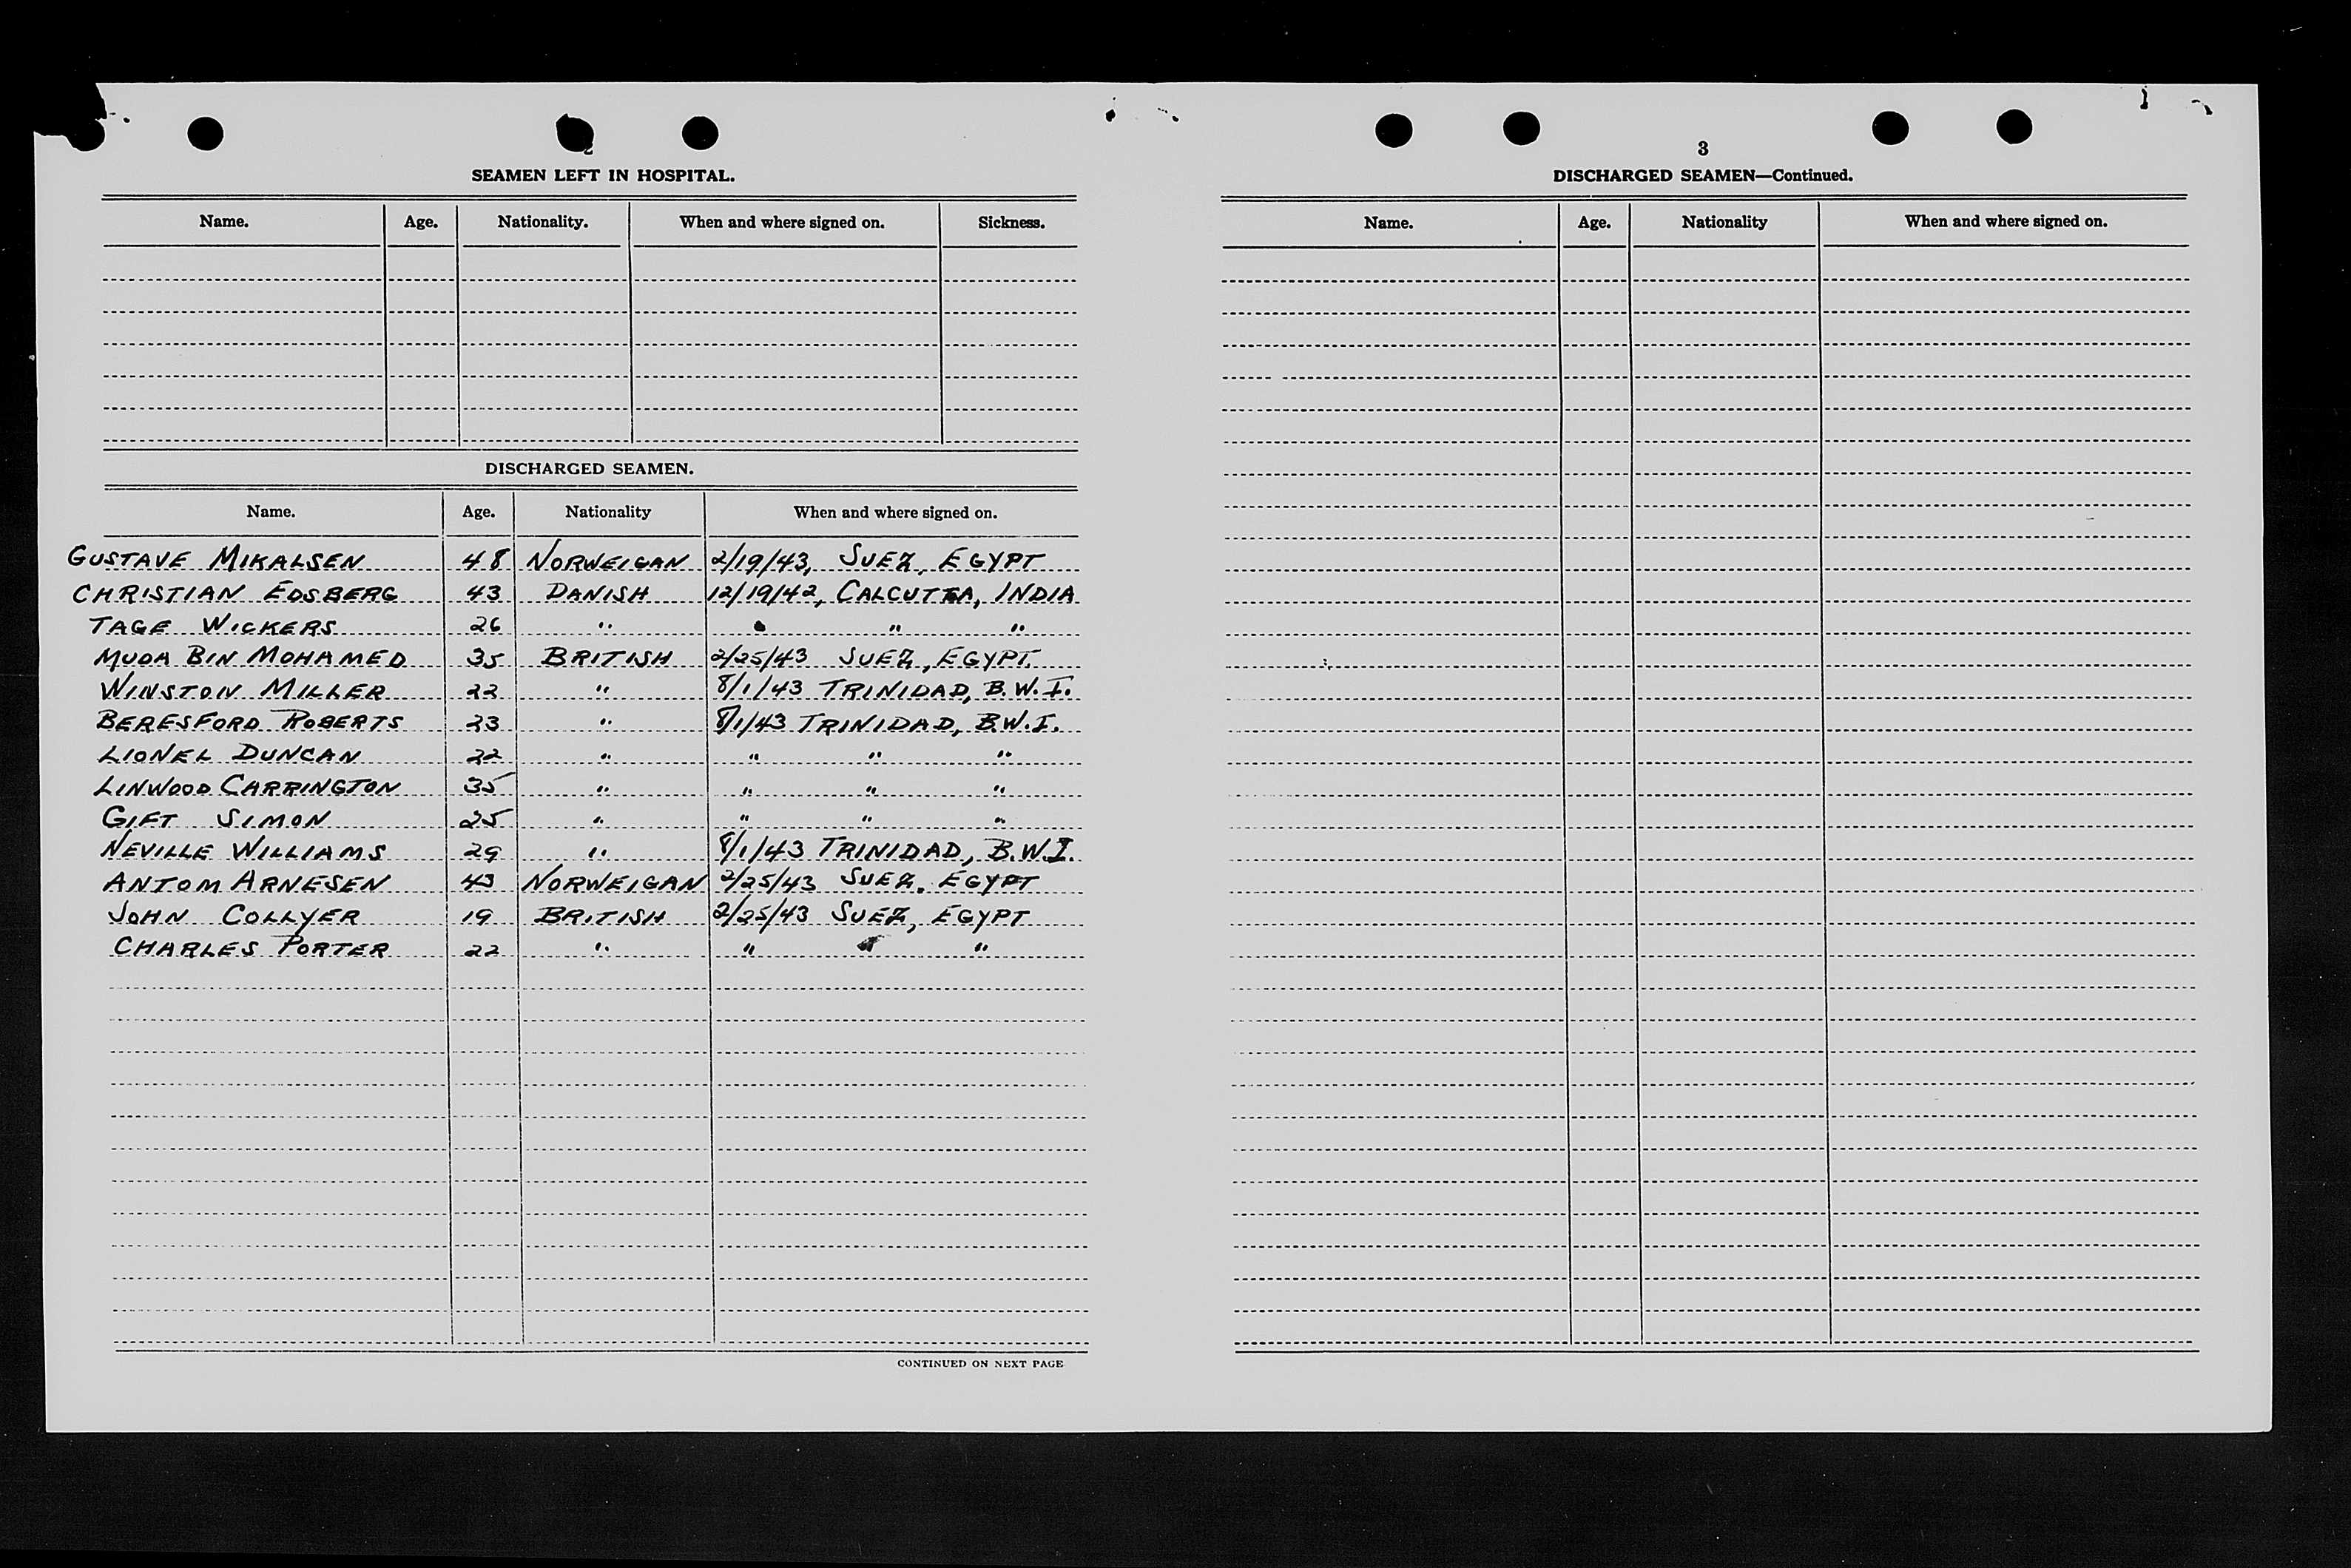 2
SEAMEN LEFT IN HOSPITAL.
Name. Age. Nationality. When and where signed on. Sickness.
DISCHARGED SEAMEN.
Name. Age. Nationality When and where signed on.
GUSTAVE MIKALSEN 48 NORWEIGAN 2/19/43, SUEZ, EGYPT
CHRISTIAN EDSBERG 43 DANISH 12/19/42, CALCUTTA, INDIA
TAGE WICKERS 26 " " " "
MUDA BIN MOHAMED 35 BRITISH 2/25/43 SUEZ, EGYPT.
WINSTON MILLER 22 " 8/1/43 TRINIDAD, B.W.I.
BERESFORD ROBERTS 23 " 8/1/43 TRINIDAD, B.W.I.
LIONEL DUNCAN 22 " " " "
LINWOOD CARRINGTON 35 " " " "
GIFT SIMON 25 " " " "
NEVILLE WILLIAMS 29 " 8/1/43 TRINIDAD, B.W.I.
ANTOM ARNESEN 43 NORWEIGAN 2/25/43 SUEZ, EGYPT
JOHN COLLYER 19 BRITISH 2/25/43 SUEZ, EGYPT
CHARLES PORTER 22 " " " "
CONTINUED ON NEXT PAGE
3
DISCHARGED SEAMEN—Continued.
Name. Age. Nationality When and where signed on.